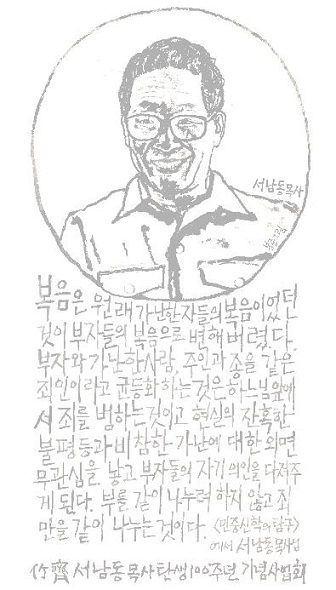 서남동목사
복음은 원래 가난한 자들의 복음이었던
것이 부자들의 복음으로 변해 버렸다.
부자와 가난한 사람, 주인과 종을 같은
죄인이라고 균등화하는 것은 하느님 앞에
서 죄를 범하는 것이고 현실의 잔혹한
불평등과 비참한 가난에 대한 외면
무관심을 낳고 부자들의 자기 의인을 다져주
게 된다. 부를 같이 나누려 하지 않고 죄
만을 같이 나누는 것이다. <민중신학의 탐구>
에서 서남동목사님
竹齋 서남동목사탄생100주년 기념사업회